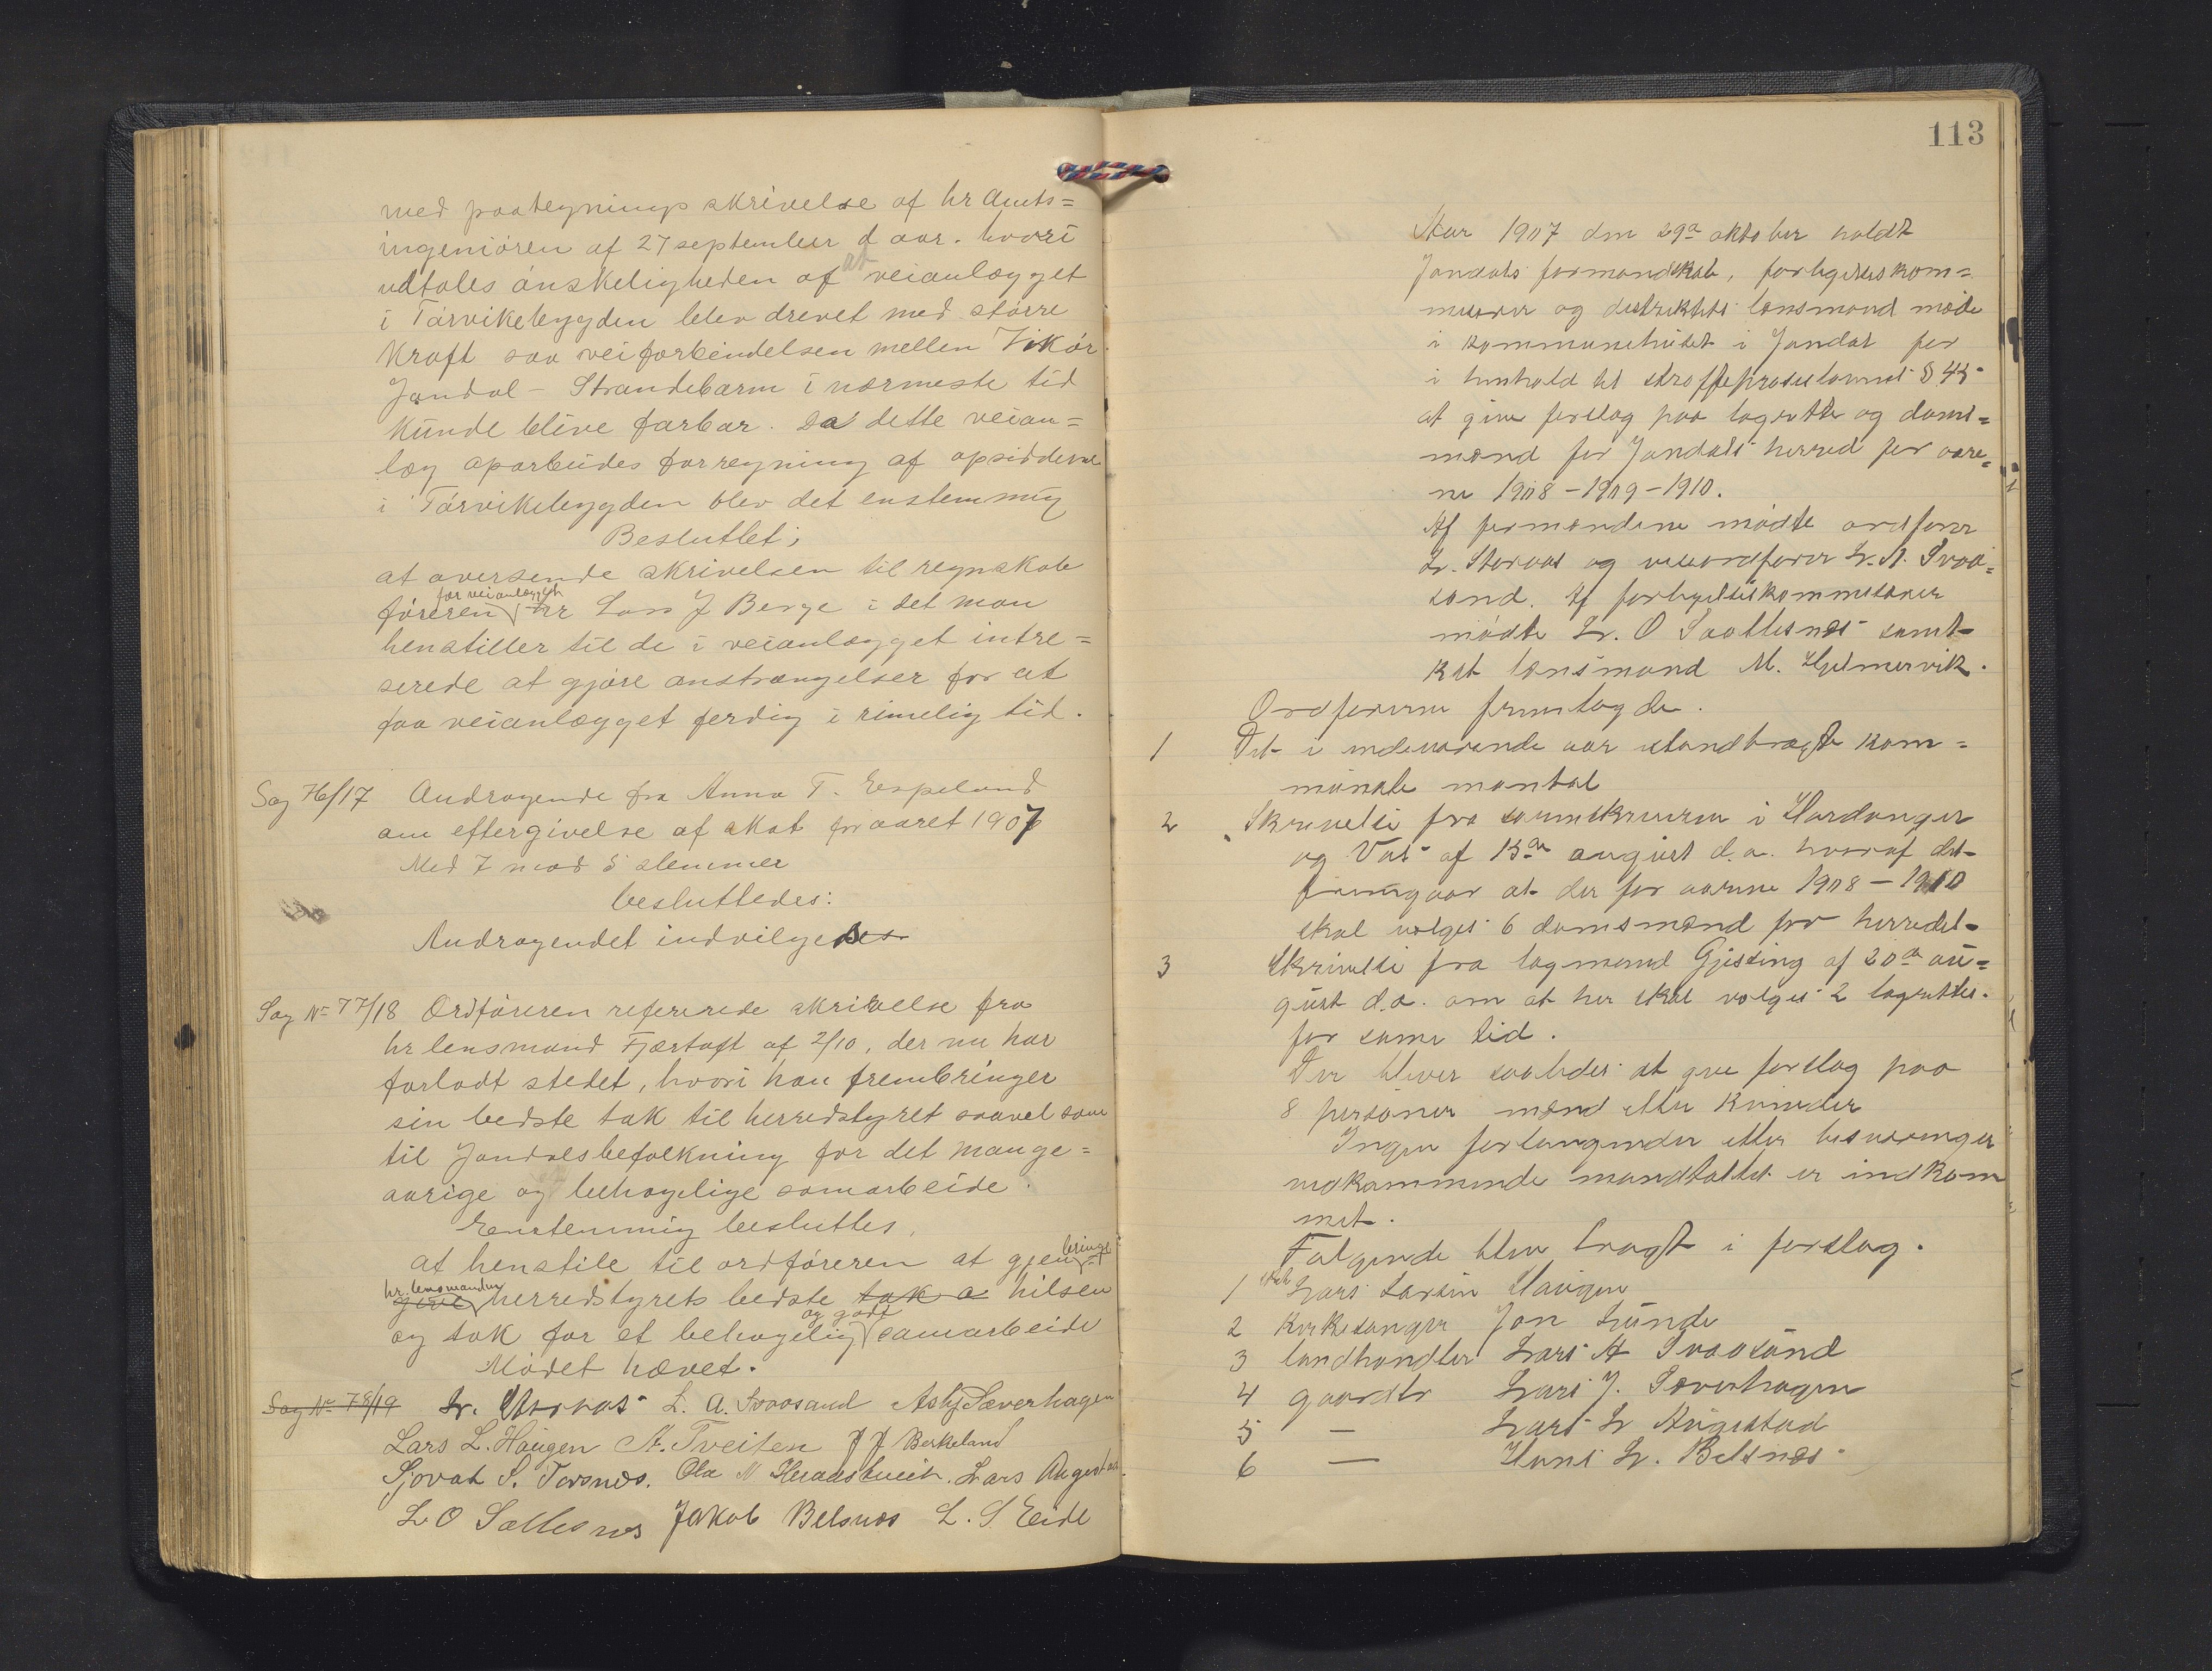 med paategnings skrivelse af hr Amts=
ingeniören af 27 september d aar. hvori
udtales önskeligheden af at veianlægget
i Törvikebygden blev drevet med större
kraft saa veiforbindelsen mellen Vikör
Jondal - Strandebarm i nærmeste tid
kunde blive farbar. Da dette veian=
læg oparbeides for regning af opsidderne
i Törvikebygden blev det enstemmig
Besluttet;
at oversende skrivelsen til regnskab
for veianlægget
föreren hr Lars J Berge i det man
henstiller til de i veianlægget intre=
serede at gjöre anstrængelser for at
faa veianlægget ferdig i rimelig tid.
Sag 76/17 Andragende fra Anna T. Espeland
om eftergivelse af skat for aaret 1907
Med 7 mod 5 stemmer
besluttedes:
Andragendet indvilgedes
Sag No 77/18 Ordföreren refererede skrivelse fra
hr lensmand Fjærtoft af 2/10, der nu har
forladt stedet, hvori han frembringer
sin bedste tak til herredstyret saavel som
til Jondalsbefolkning for det mange=
aarige og behagelige samarbeide.
Enstemmig besluttes,
at henstile til ordföreren at gjenbringe
hr. lensmanden
give herredstyrets bedste tak o hilsen
og godt
og tak for et behagelig samarbeide
Mödet hævet.
Sag No 78/19 Lr. Storaas L. A. Svaasand Asbj Sæverhagen
Lars L. Haugen A. Tveiten J J Berkeland
Sjovat S. Torsnes. Ola N Heradstveit. Lars Augestad.
L O Sattesnes Jakob Belsnes L. S. Eide
113
Aar 1907 den 29de oktober holdt
Jondals formandskab, forligelseskom=
misærer og distriktets lensmand möde
i kommunehuset i Jondal for
i henhold til straffeproseslovens § 45
at give forslag paa lagrette og doms=
mænd for Jondals herred for aare=
ne 1908-1909-1910.
Af formændene mödte ordförer
Lr. Storaas og viseordförer Lr. A. Svaa=
sand. Af forligelseskommisærer
mödte Lr. O Saattesnes samt
kst lensmand M. Hjelmervik.
Ordföreren fremlagde.
1 Det i indeværende aar istandbragte kom=
munale mantal
2 Skrivelse fra sorenskriveren i Hardanger
og Vos af 13de august d.a. hvoraf det
fremgaar at der for aarene 1908-1910
skal vælges 6 domsmænd for herredet
3 Skrivelse fra lagmand Gjissing af 20de au=
gust d.a. om at her skal vælges 2 lagrettes.
for same tid.
Der bliver saaledes at give forslag paa
8 personer mænd eller kvinder
Ingen forlangender eller besværinger
vedkommende mandtallet er indkom
met.
Fölgende blev bragt i forslag.
1 Lars Larsen Haugen
2 kirkesanger Jon Lunde
3 landhandler Lars A Svaasand
4 gaardbr Lars J. Sæverhagen
5 — Lars L Augestad
6 — Hans Lr. Belsnes